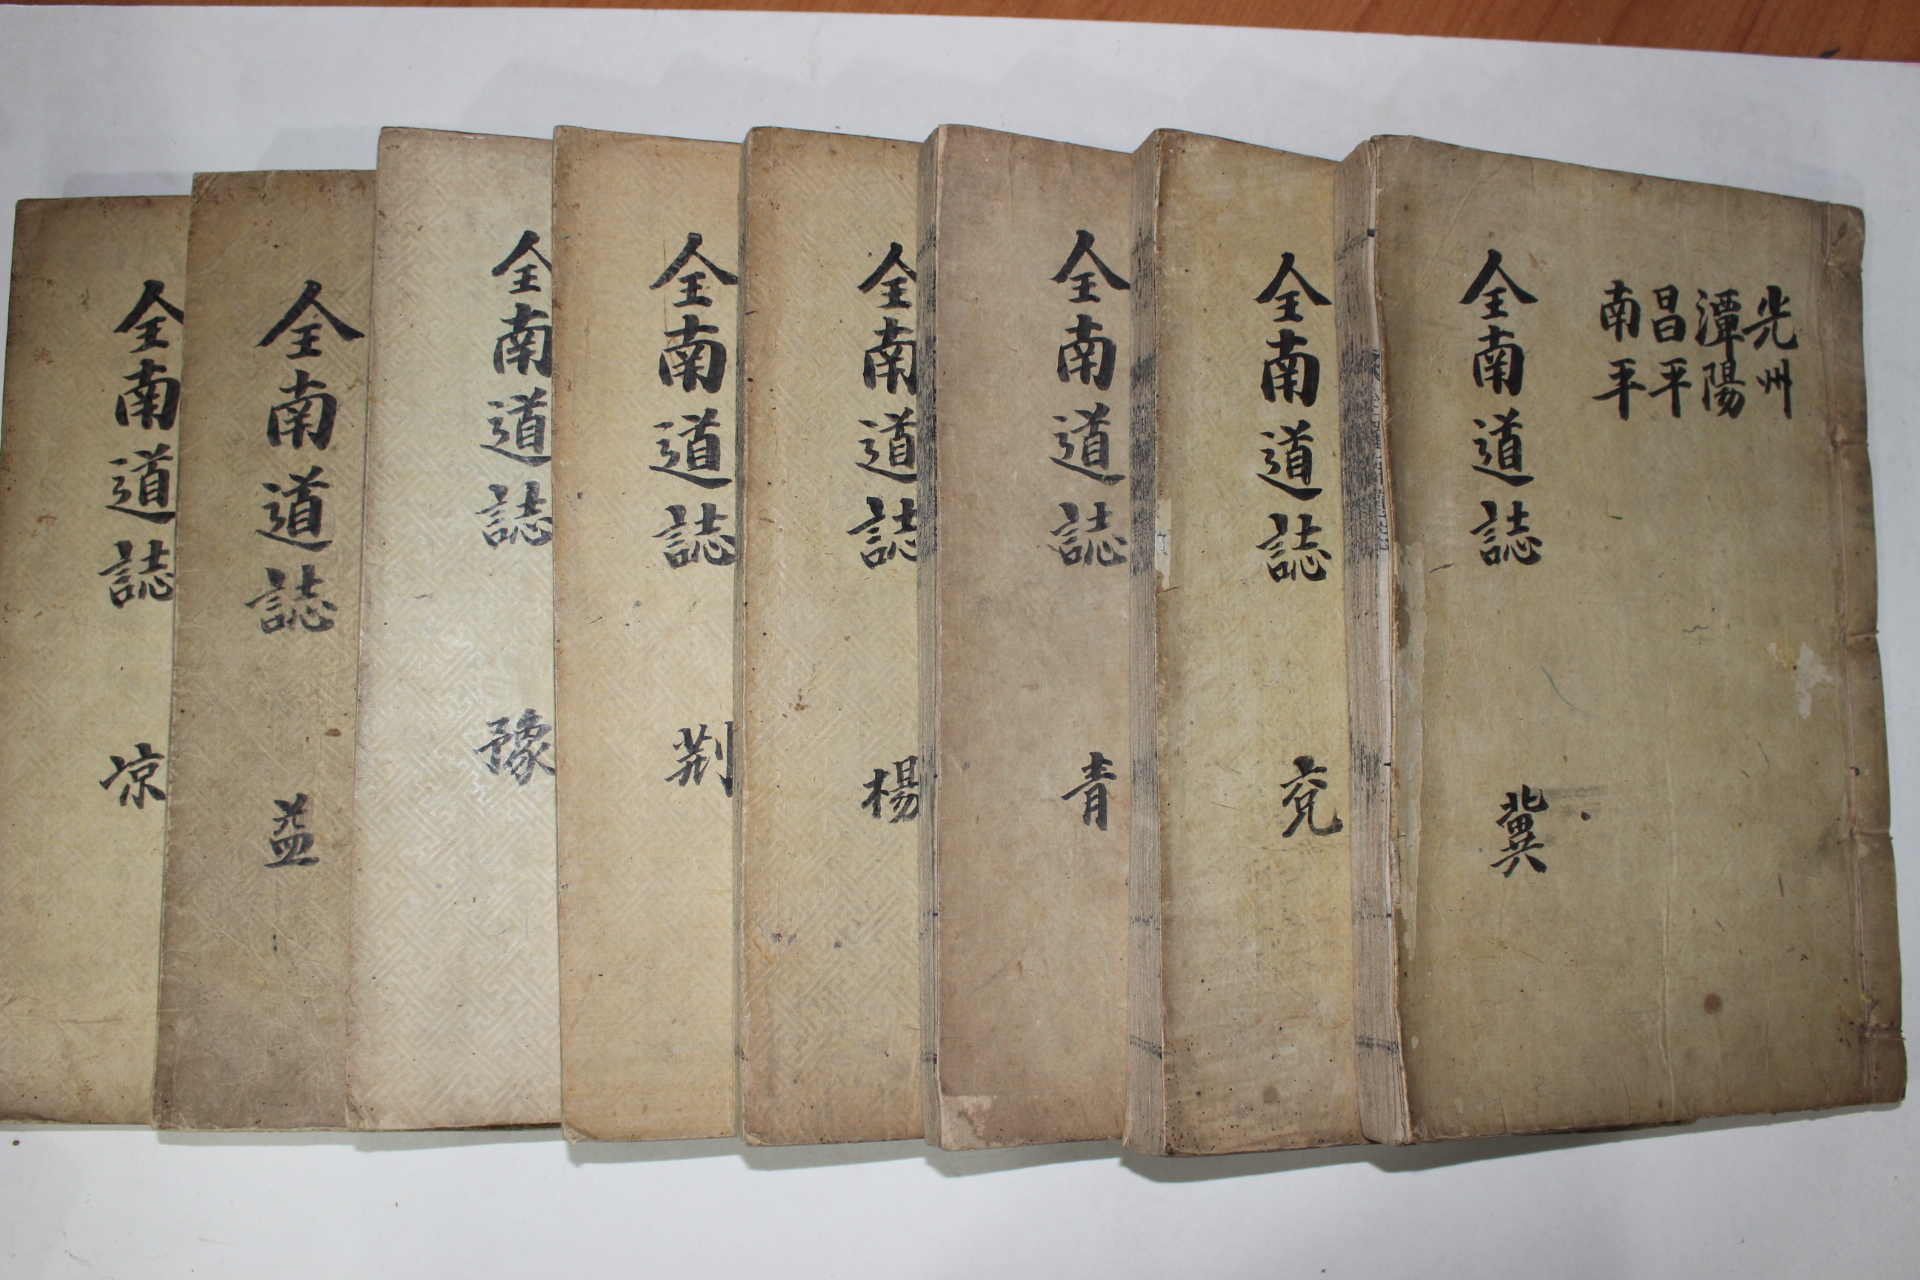 光州
潭陽
昌平
南平
全南道誌
冀
全南道誌
兗
全南道誌
青
全南道誌
楊
全南道誌
荆
全南道誌
豫
全南道誌
益
全南道誌
凉